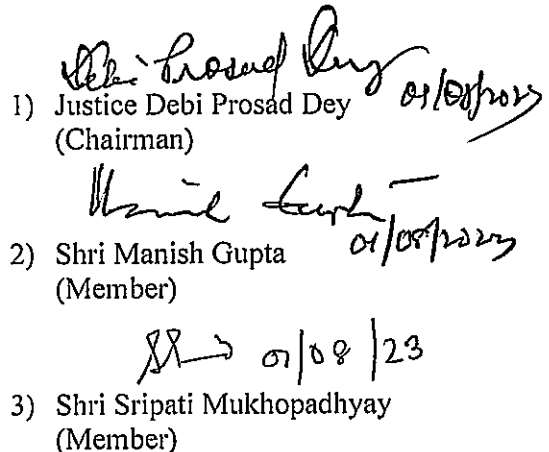 Debi Prosad Dey
01/08/2023
1) Justice Debi Prosad Dey
(Chairman)
Manish Gupta
01/08/2023
2) Shri Manish Gupta
(Member)
01/08/23
3) Shri Sripati Mukhopadhyay
(Member)